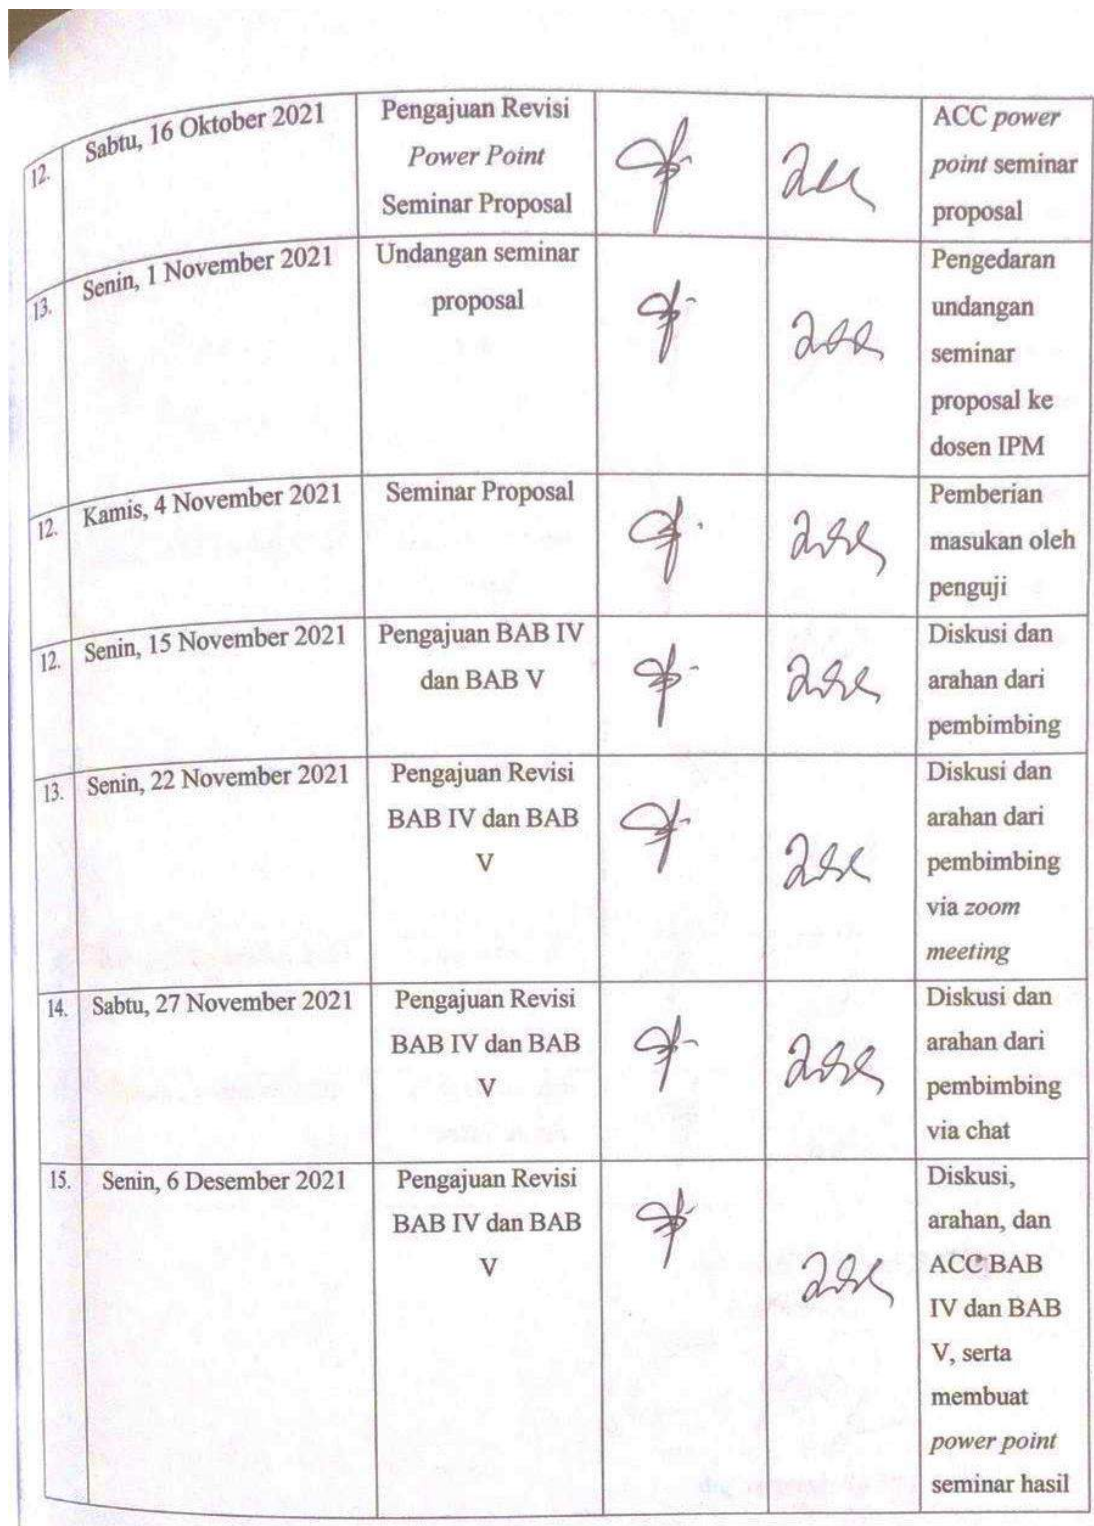 12.
Sabtu, 16 Oktober 2021
Pengajuan Revisi
Power Point
Seminar Proposal
ACC power
point seminar
proposal
13.
Senin, 1 November 2021
Undangan seminar
proposal
Pengedaran
undangan
seminar
proposal ke
dosen IPM
12.
Kamis, 4 November 2021
Seminar Proposal
Pemberian
masukan oleh
penguji
12.
Senin, 15 November 2021
Pengajuan BAB IV
dan BAB V
Diskusi dan
arahan dari
pembimbing
13.
Senin, 22 November 2021
Pengajuan Revisi
BAB IV dan BAB
V
Diskusi dan
arahan dari
pembimbing
via zoom
meeting
14.
Sabtu, 27 November 2021
Pengajuan Revisi
BAB IV dan BAB
V
Diskusi dan
arahan dari
pembimbing
via chat
15.
Senin, 6 Desember 2021
Pengajuan Revisi
BAB IV dan BAB
V
Diskusi,
arahan, dan
ACC BAB
IV dan BAB
V, serta
membuat
power point
seminar hasil